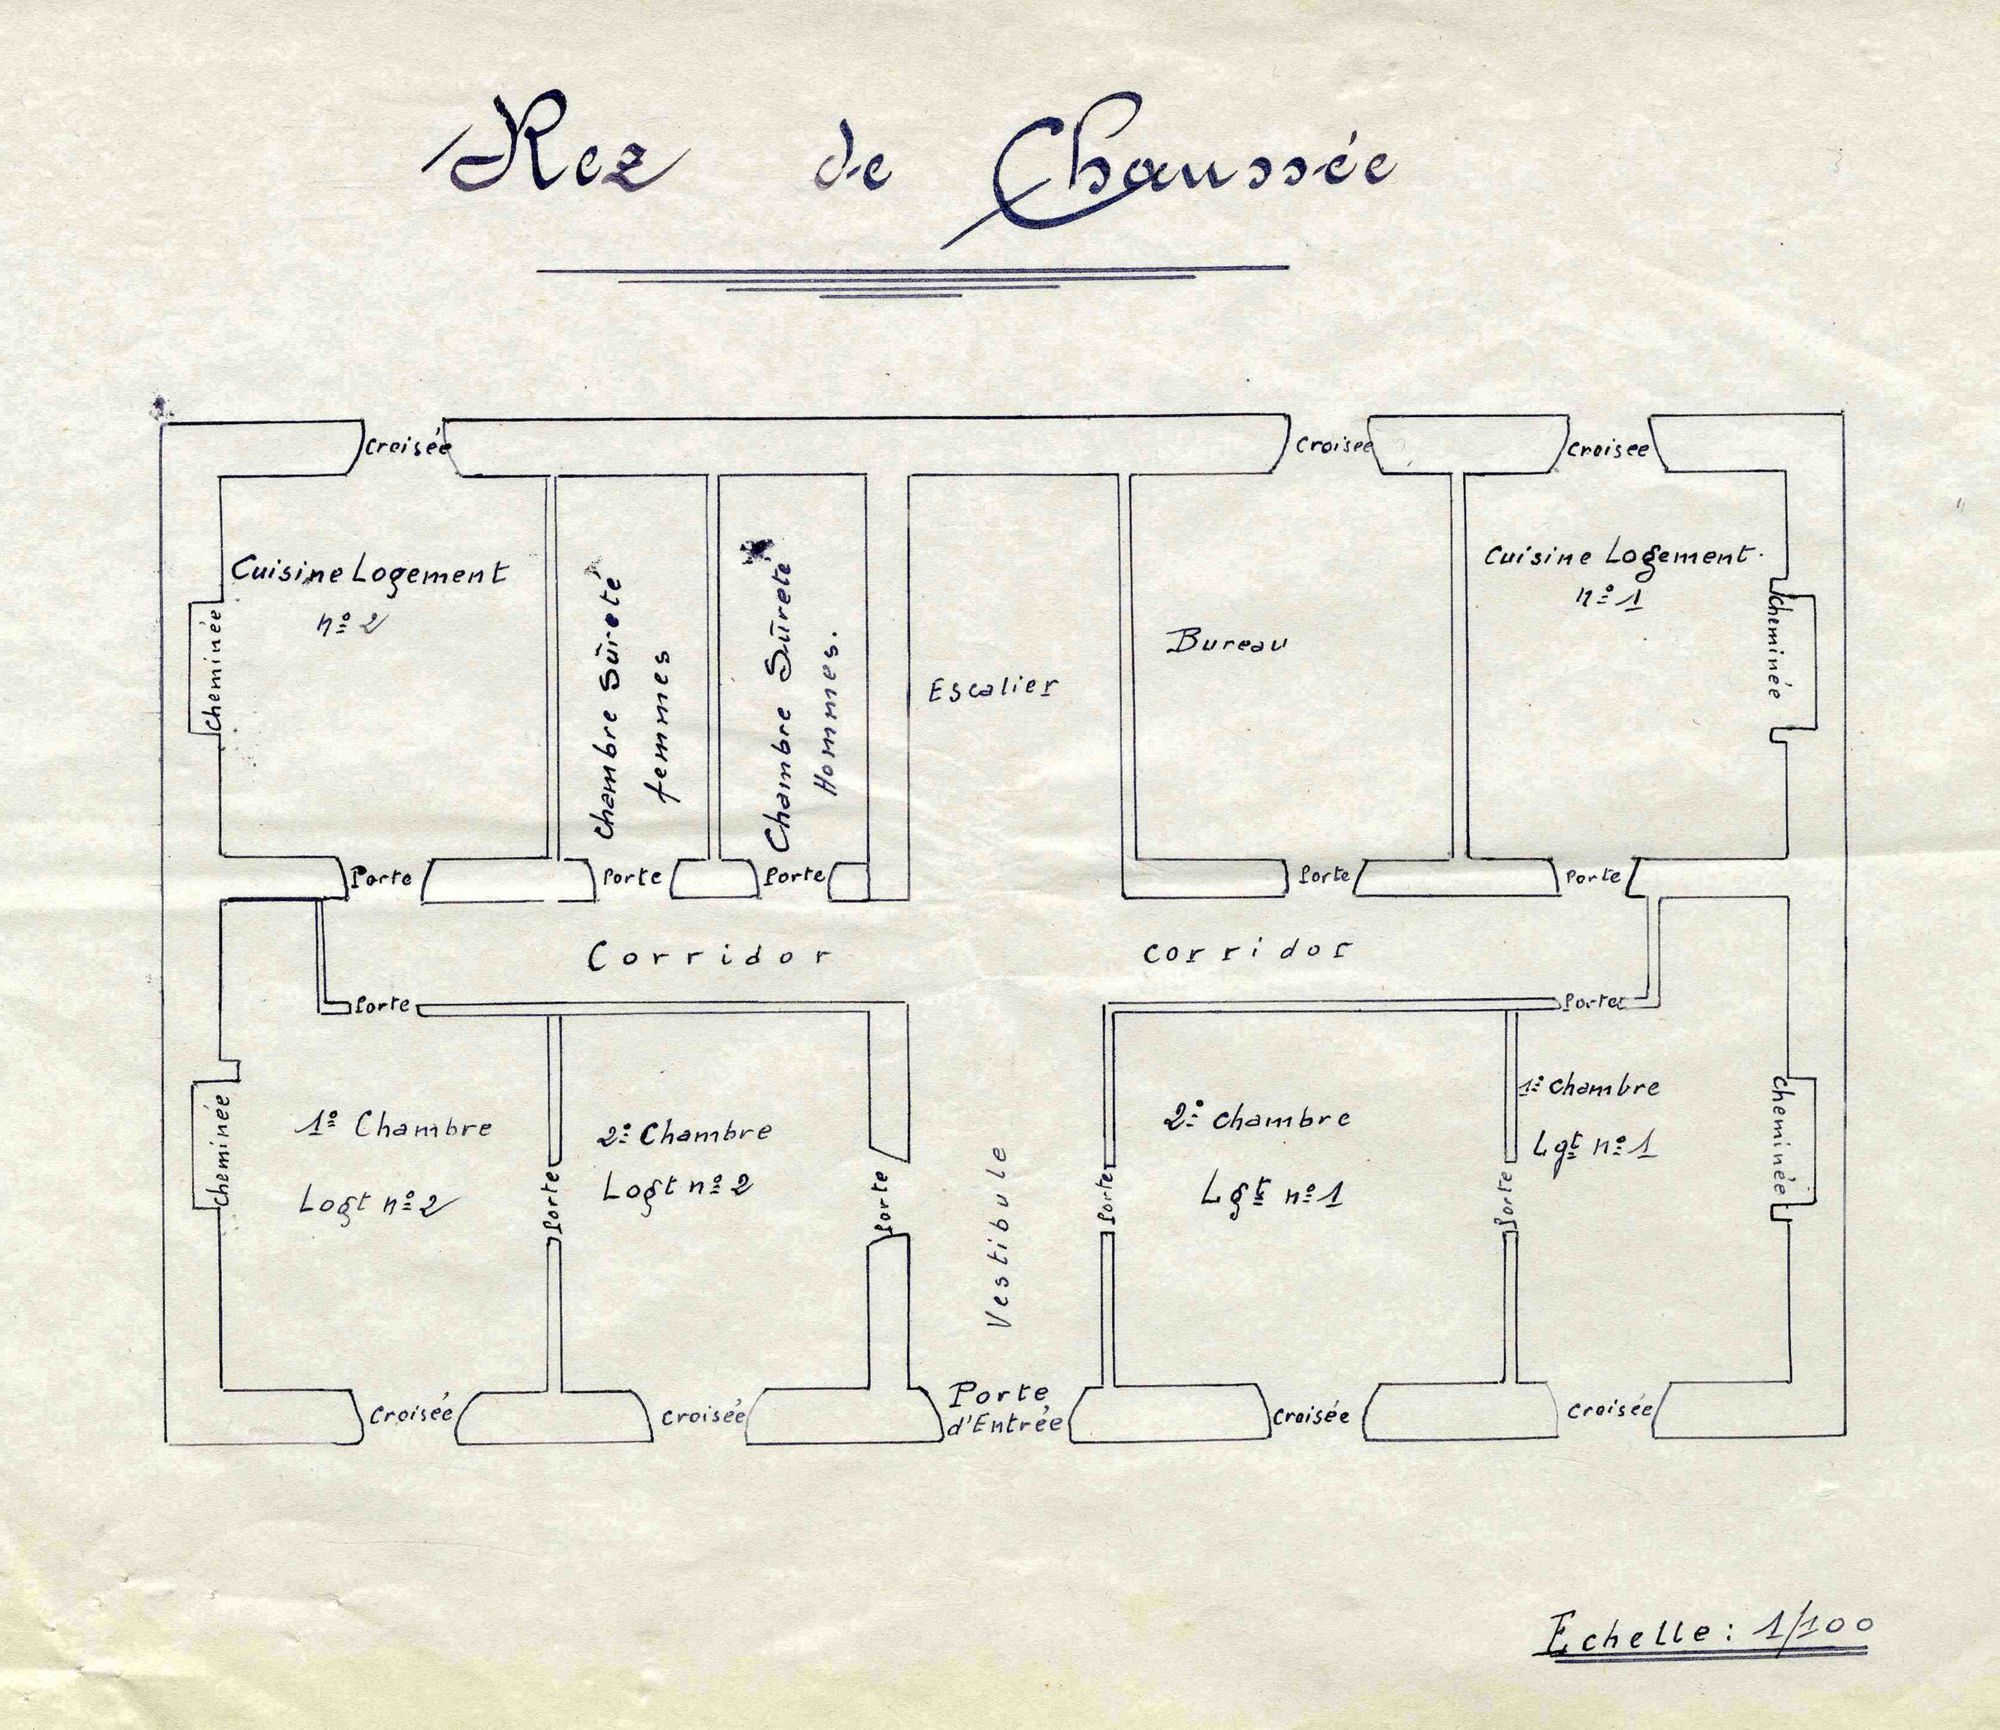 Rez de Chaussée
Croisée
Croisee
Croisee
Cuisine Logement
nº 2
Cheminée
Chambre Sûreté
femmes
Chambre Sûreté
Hommes.
Escalier
Bureau
Cuisine Logement.
nº 1
Cheminée
Porte
Porte
Porte
Porte
Porte
Corridor
Corridor
Porte
Porte
Cheminée
1º Chambre
Logt nº 2
Porte
2º Chambre
Logt nº 2
Porte
Vestibule
Porte
2º Chambre
Lgt nº 1
Porte
1º Chambre
Lgt nº 1
Cheminée
Croisée
Croisée
Porte
d'Entrée
Croisée
Croisée
Echelle : 1/100